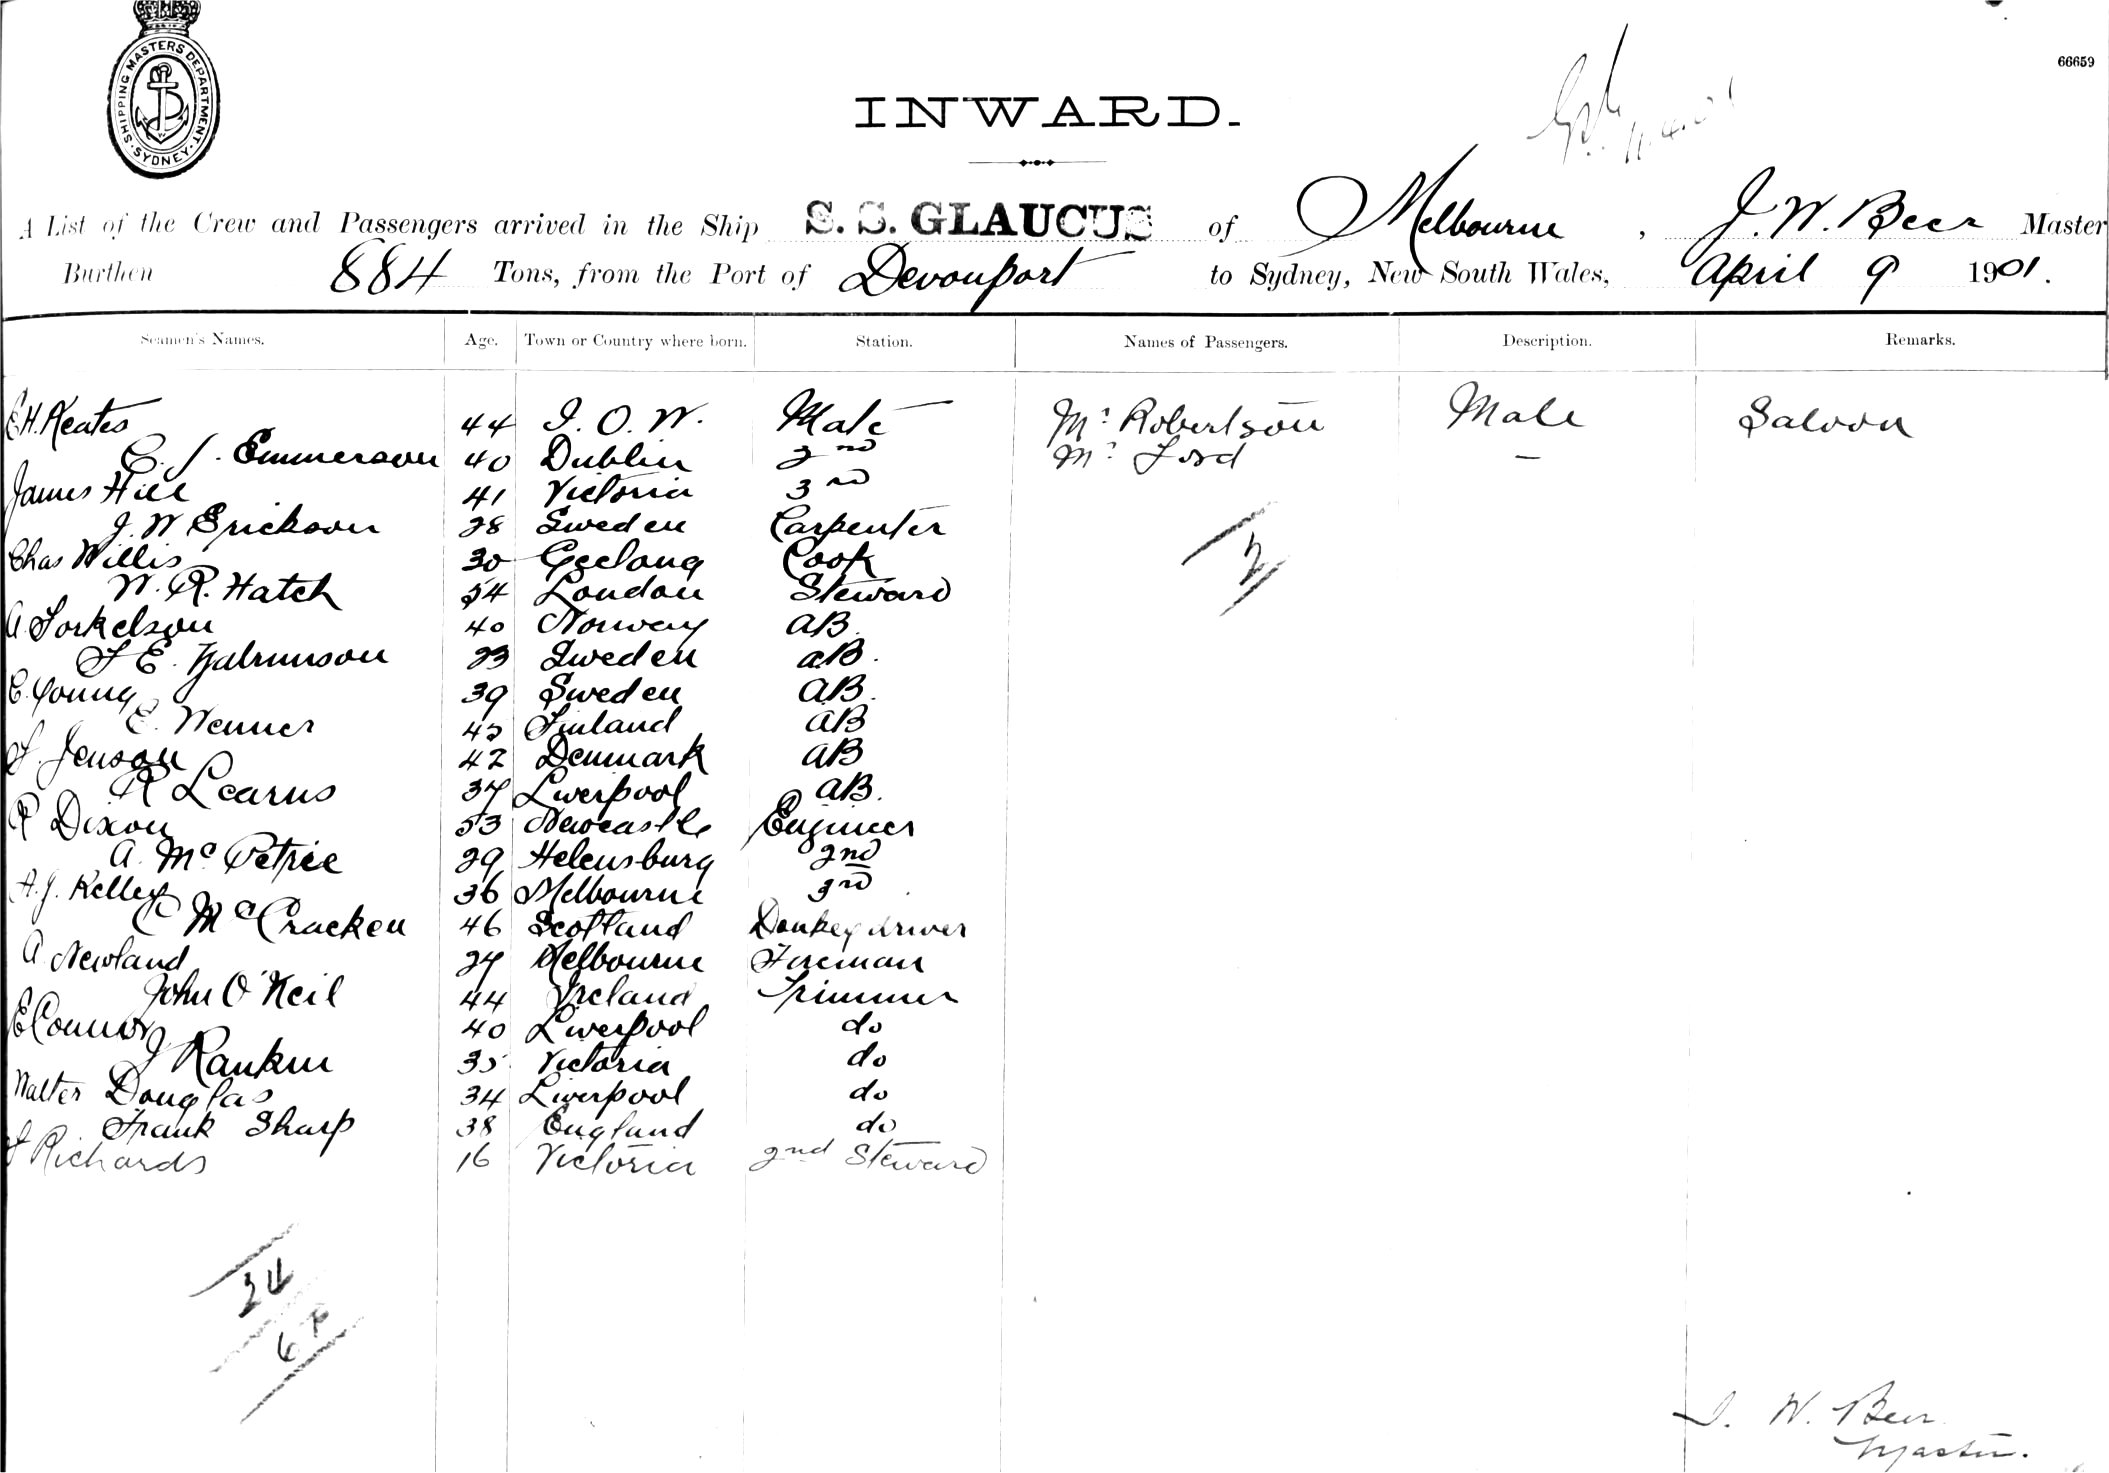 SHIPPING MASTERS DEPARTMENT. SYDNEY.
66659
INWARD.
A List of the Crew and Passengers arrived in the Ship S. S. GLAUCUS of Melbourne, J. W. Beer Master
Burthen 884 Tons, from the Port of Devonport to Sydney, New South Wales, April 9 1901.
Seamen's Names. Age. Town or Country where born. Station. Names of Passengers. Description. Remarks.
E H. Keates 44 I. O. W. Mate Mr Robertson Male Saloon
C. J. Emmerson 40 Dublin 2nd Mr Ford –
James Hill 41 Victoria 3rd
J. W Erickson 28 Sweden Carpenter
Chas Willis 30 Geelong Cook
2
W. R. Hatch 54 London Steward
A. Torkelson 40 Norway AB.
23 Sweden AB.
C. Young 39 Sweden AB.
C. Wenner 45 Finland AB
J. Jenson 42 Denmark AB
R Learns 37 Liverpool AB.
R Dixon 53 Newcastle Engineer
A. McPetrie 29 Helensburg 2nd
A. J. Kelley 36 Melbourne 3rd
C McCracken 46 Scotland Donkey driver
A Newland 27 Melbourne Fireman
John O'Neil 44 Ireland Trimmer
E Connor 40 Liverpool do
J Rankin 35 Victoria do
Walter Douglas 34 Liverpool do
Frank Sharp 38 England do
J Richards 16 Victoria 2nd Steward
24
J. W. Beer
Master.